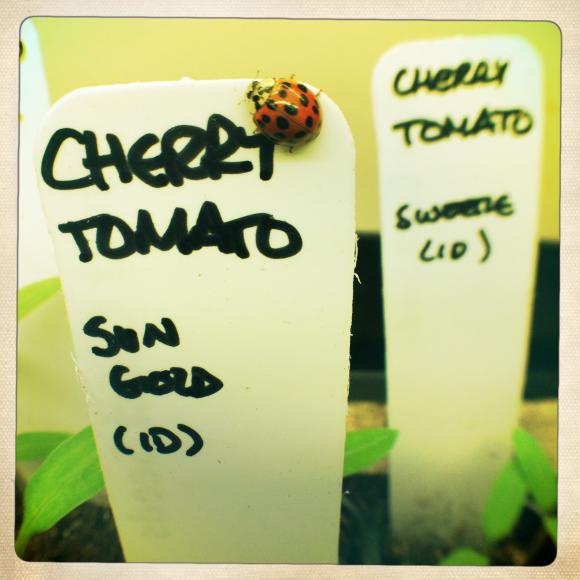 CHERRY
TOMATO
SUN
GOLD
(ID)
CHERRY
TOMATO
SWEETIE
(ID)